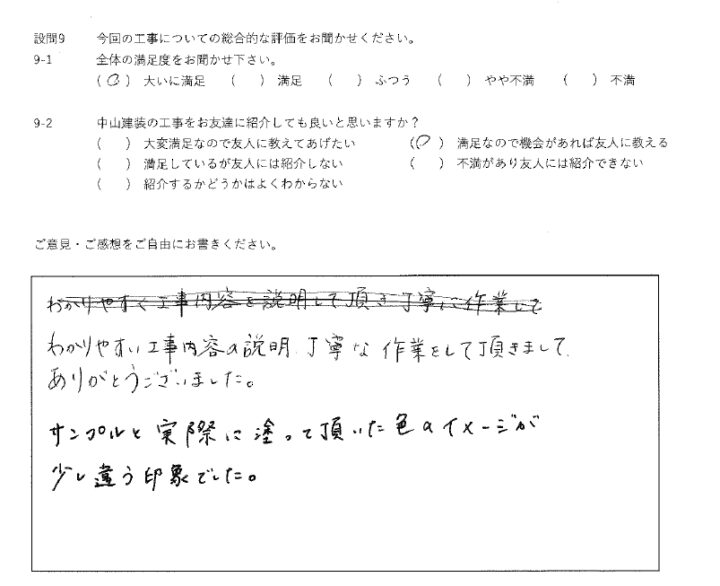 設問9 今回の工事についての総合的な評価をお聞かせください。
9-1 全体の満足度をお聞かせ下さい。
(○) 大いに満足 ( ) 満足 ( ) ふつう ( ) やや不満 ( ) 不満
9-2 中山建装の工事をお友達に紹介しても良いと思いますか？
( ) 大変満足なので友人に教えてあげたい (○) 満足なので機会があれば友人に教える
( ) 満足しているが友人には紹介しない ( ) 不満があり友人には紹介できない
( ) 紹介するかどうかはよくわからない
ご意見・ご感想をご自由にお書きください。
わかりやすく工事内容を説明して頂き丁寧に作業して
わかりやすい工事内容の説明、丁寧な作業をして頂きまして、
ありがとうございました。
サンプルと実際に塗って頂いた色のイメージが
少し違う印象でした。